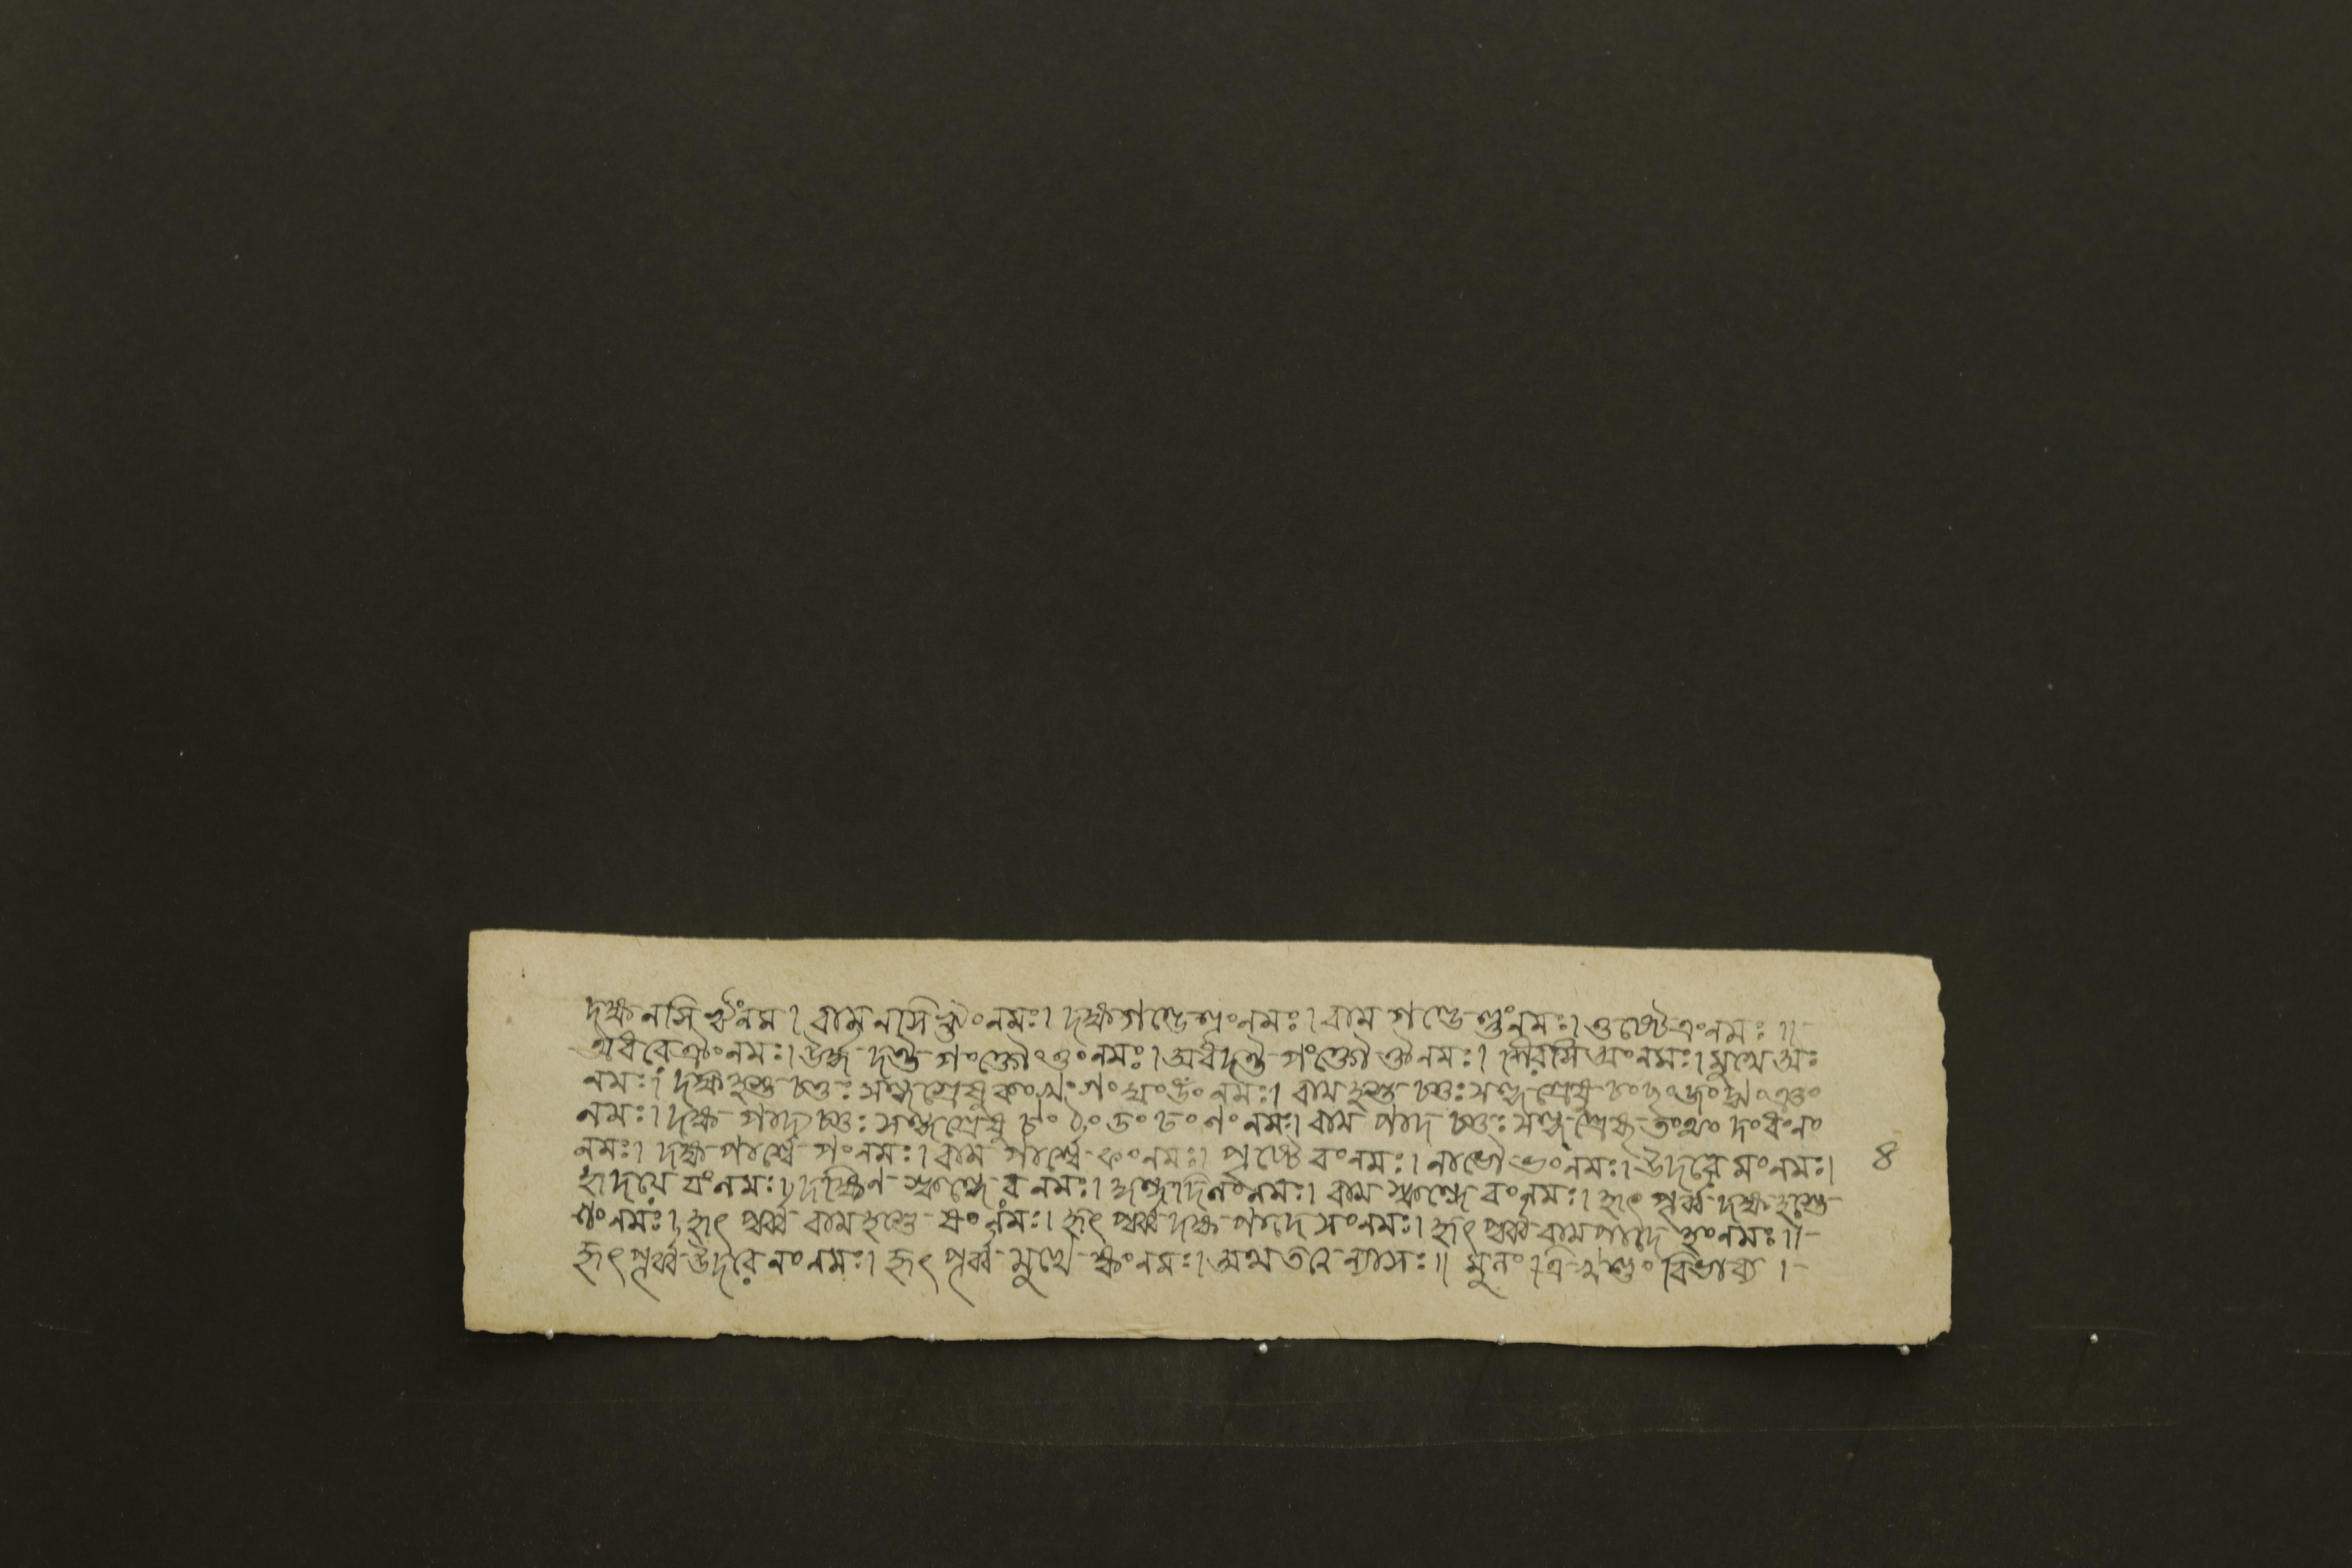 দক্ষনসি ঋংনম। বামনসি ৠংনমঃ। দক্ষগণ্ডে ঌংনমঃ। বাম গণ্ডে ৡংনমঃ। ওষ্ঠে এংনমঃ॥
অধরে ঐংনমঃ। ঊর্দ্ধ দন্ত পংক্তৌ ওংনমঃ। অধদন্ত পংক্তৌ ঔনমঃ। শিরসি অংনমঃ। মুখে অঃ
নমঃ। দক্ষ হস্ত সন্ধ্যগ্রেষু কং খং গং ঘং ঙং নমঃ। বাম হস্ত সন্ধ্যগ্রেষু চং ছং জং ঝং ঞং
নমঃ। দক্ষ পাদ সন্ধ্যগ্রেষু টং ঠং ডং ঢং ণং নমঃ। বাম পাদ তং থং দং ধং নং
নমঃ। দক্ষ পার্শ্বে পংনমঃ। বাম পার্শ্বে ফংনমঃ। পৃষ্ঠে বংনমঃ। নাভৌ ভংনমঃ। উদরে মংনমঃ। ৪
হৃদয়ে যংনমঃ। দক্ষিণ স্কন্ধে র নমঃ। বাম স্কন্ধে বংনমঃ। হৃৎ পূর্ব্ব দক্ষ হস্তে
শংনমঃ। হৃৎ পূর্ব্ব বামহস্তে ষংনমঃ। হৃৎ পূর্ব্ব দক্ষ পাদে সংনমঃ। হৃৎ পূর্ব্ব বামপাদে হংনমঃ॥
হৃৎ পূর্ব্ব উদরে লংনমঃ। হৃৎ পূর্ব্ব মুখে ক্ষংনমঃ। ন্যাসঃ॥ বিভাব্য।